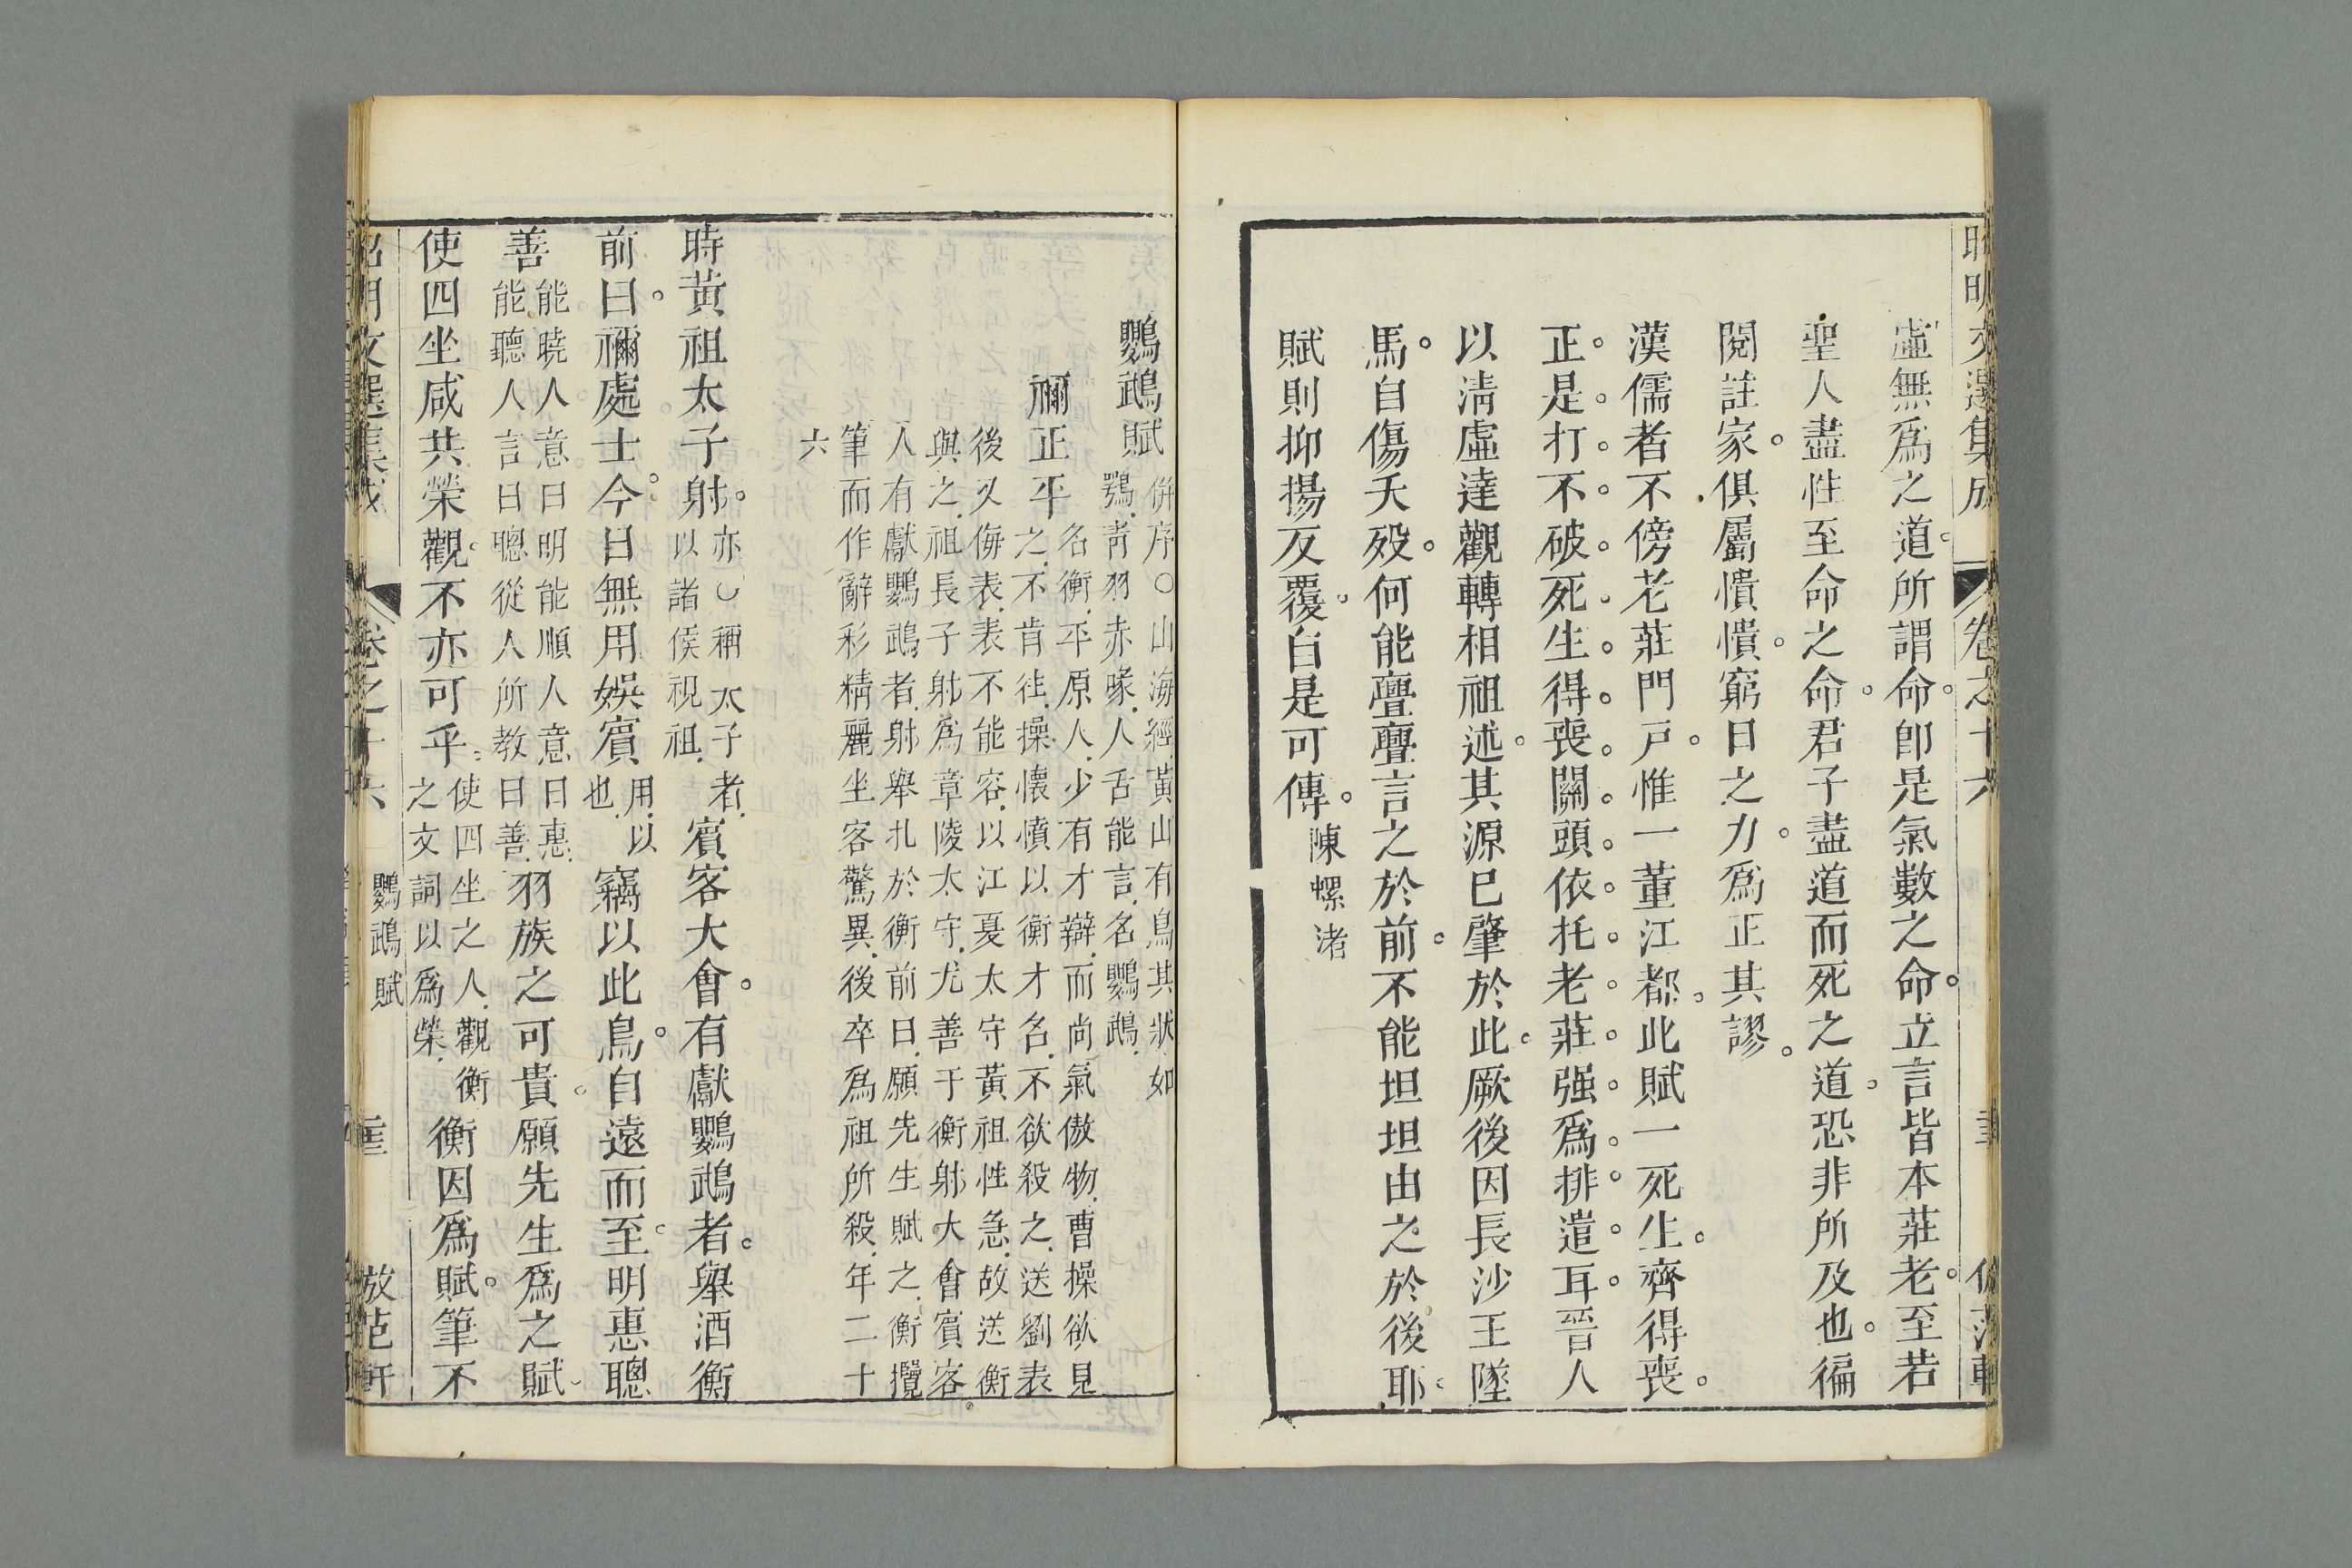 虛無爲之道所謂命卽是氣數之命立言皆本莊老至若
聖人盡性至命之命君子盡道而死之道恐非所及也徧
閱註家俱屬憒憒窮日之力爲正其謬
漢儒者不傍老莊門戸惟一董江都此賦一死生齊得喪
正是打不破死生得喪關頭依托老莊强爲排遣耳晉人
以淸虛達觀轉相祖述其源已肇於此厥後因長沙王墜
馬自傷夭歿何能亹亹言之於前不能坦坦由之於後耶
賦則抑揚反覆自是可傳陳螺渚
鸚鵡賦
併序○山海經黃山有鳥其狀如
鶚靑羽赤喙人舌能言名鸚鵡
禰正平
名衡平原人少有才辯而尚氣傲物曹操欲見
之不肯往操懷憤以衡才名不欲殺之送劉表
後又侮表表不能容以江夏太守黃祖性急故送衡
與之祖長子射爲章陵太守尤善于衡射大會賓客
人有獻鸚鵡者射舉札於衡前曰願先生賦之衡攬
筆而作辭彩精麗坐客驚異後卒爲祖所殺年二十
六
時黃祖太子射亦○稱太子者以諸侯視祖賓客大會有獻鸚鵡者舉酒衡
前曰禰處士今日無用娛賓用以也竊以此鳥自遠而至明惠聰
善能曉人意曰明能順人意曰惠能聽人言曰聰從人所教曰善羽族之可貴願先生爲之賦
使四坐咸共榮觀不亦可乎使四坐之人觀衡之文詞以爲榮衡因爲賦筆不
昭明文選集成
卷之十六
鸚鵡賦